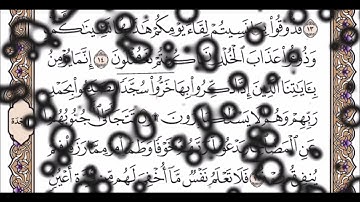 ١٣ فَذُوقُوا۟ بِمَا نَسِيتُمْ لِقَآءَ يَوْمِكُمْ هَٰذَآ نَسِينَٰكُمْ
وَذُوقُوا۟ عَذَابَ ٱلْخُلْدِ كُنتُمْ تَعْمَلُونَ ١٤ إِنَّمَا يُؤْمِنُ
بِـَٔايَٰتِنَا ٱلَّذِينَ إِذَا ذُكِّرُوا۟ بِهَا خَرُّوا۟ سُجَّدًا بِحَمْدِ
رَبِّهِمْ وَهُمْ لَا يَسْتَكْبِرُونَ تَتَجَافَىٰ جُنُوبُهُمْ
عَنِ ٱلْمَضَاجِعِ يَدْعُونَ خَوْفًا وَطَمَعًا وَمِمَّا رَزَقْنَٰهُمْ
يُنفِقُونَ فَلَا تَعْلَمُ نَفْسٌ مَّآ أُخْفِىَ لَهُم مِّن قُرَّةِ أَعْيُنٍ